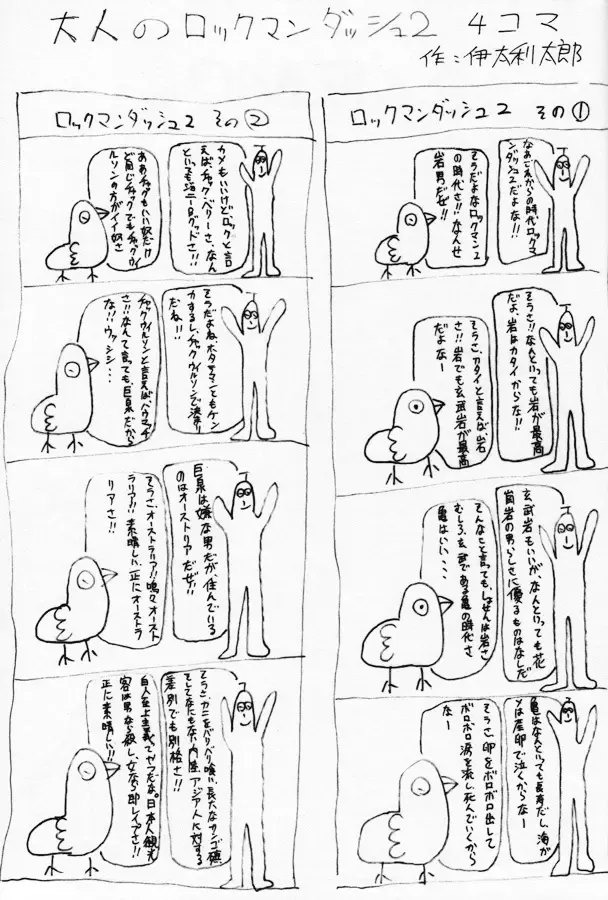 大人のロックマンダッシュ2 4コマ
作:伊太利太郎
ロックマンダッシュ2 その①
なあこれからの時代ロックマ
ンダッシュ2だよな!!
そうだよなロックマン2
の時代さ!!なんせ
岩男だぜ!!
そうさ!!なんといっても岩が最高
だよ、岩はカタイからな!!
そうさ、カタイと言えば岩石
さ!!岩でも玄武岩が最高
だよなー
玄武岩もいいが、なんといっても花
崗岩の男らしさに優るものはなしだ
そんなこと言っても、しょせんは岩さ
むしろ、玄武である亀の時代さ
亀はいい・・・
亀はなんといっても長寿だし、海が
メは産卵で泣くからなー
そうさ、卵をボロボロ出して
ボロボロ涙を流し死んでいくから
なー
ロックマンダッシュ2 その②
カメもいいけど、ロックと言
えばチャック・ベリーさ、なん
といってもジョニーBグッドさ!!
ああチャックもいい奴だけ
ど同じチャックでもチャックウィ
ルソンの方がイイ奴さ
そうだよね、ホタテマンとケンケン
カするし、チャックウィルソンで決まり
だね!!
チャックウィルソンと言えば、ハウマッチ
さ!!なんて言っても巨泉だから
な!!ウッシシシ・・・
巨泉は嫌な男だが、住んでいる
のはオーストリアだぜ!!
そうさ、オーストラリア!!嗚々オースト
ラリア!!素晴しい、正にオーストラ
リアさ!!
そうさ、カニをバリバリ喰い、長大なサンゴ礁
そしてなにもない内陸、アジア人に対する
差別でも別格さ!!
白人至上主義ってヤツだな。日本人観光
客は男なら殺し、女なら即レイプさ!!
正に素晴しい!!